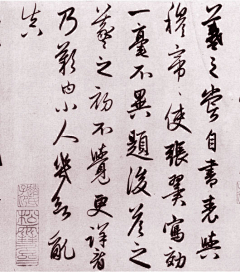 羲之嘗自書表與
穆帝〻使張翼寫効
一毫不異題後答之
羲之初不覺更詳看
乃歎曰小人幾欲亂
真